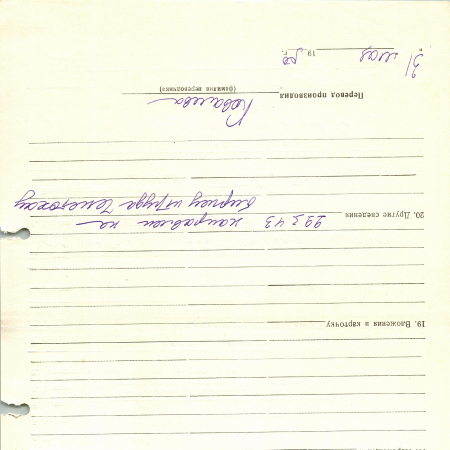 19. Вложения в карточку
20. Другие сведения 29 5 43 направлен на
биржу труда Ченстохау
Перевод производил Ковалева
(фамилия переводчика)
"31 мая 19 г.